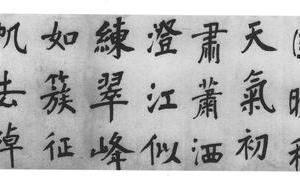 天氣初
肅蕭洒
澄江似
練翠峰
如簇征
帆去棹